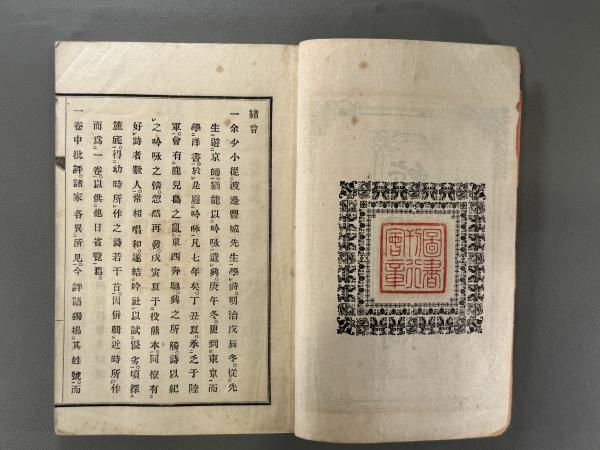 緒言
一余少小從渡邊豐城先生學詩明治戊辰冬從先
生遊京師猶能以吟咏遺興庚午冬更到東京而
學洋書於是廢吟咏凡七年矣丁丑夏承乏于陸
軍曾有鹿兒島之亂東西奔馳興之所觸詩以紀
之吟咏之情忽然再發戊寅夏于役熊本同僚有
好詩者數人常相唱和遂結吟社以試優劣頃探
篋底得幼時所作之詩若干首因併輯近時所作
而爲一卷以供他日省覽焉
一卷中批評諸家各異所見今評語獨揭其姓號而
圖書
刊行
會章